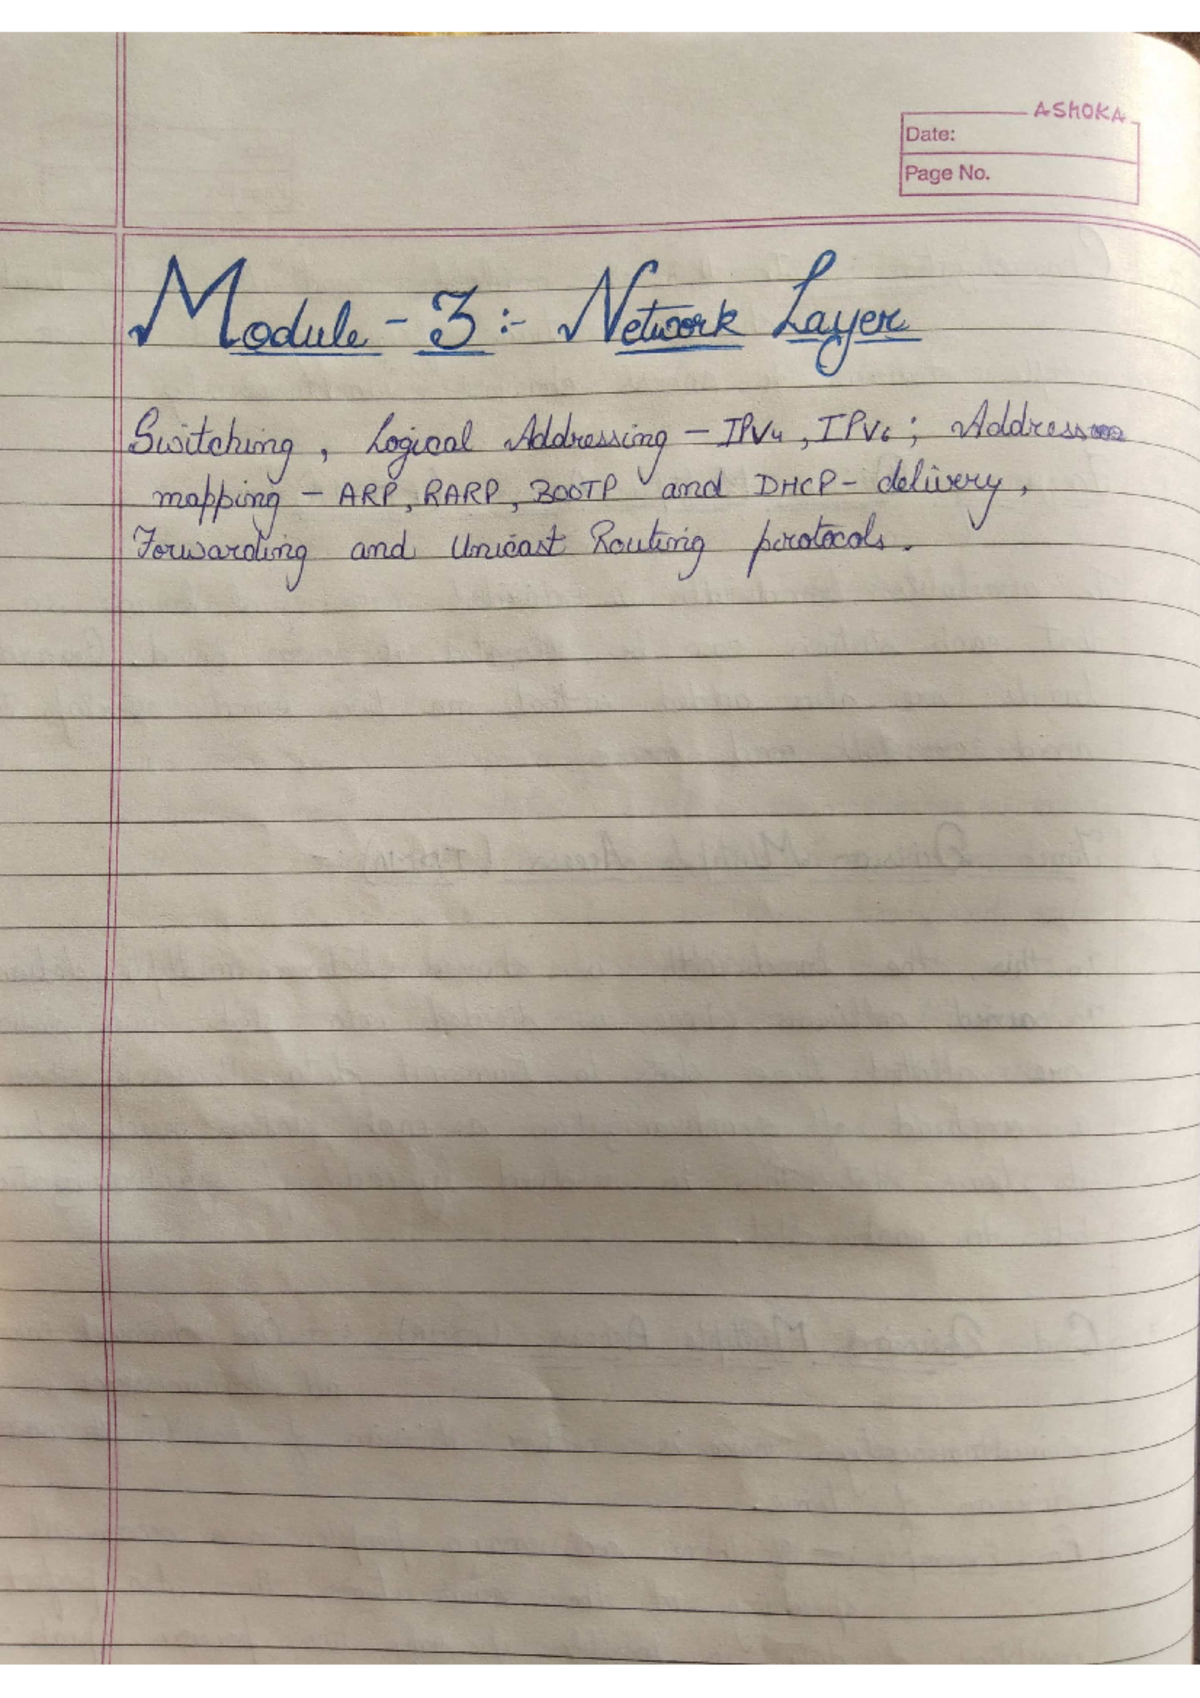 ASHOKA
Date:
Page No.
Module - 3 :- Network Layer
Switching, Logical Addressing - IPv4, IPv6; Address
mapping - ARP, RARP, BOOTP and DHCP - delivery,
Forwarding and Unicast Routing protocols.